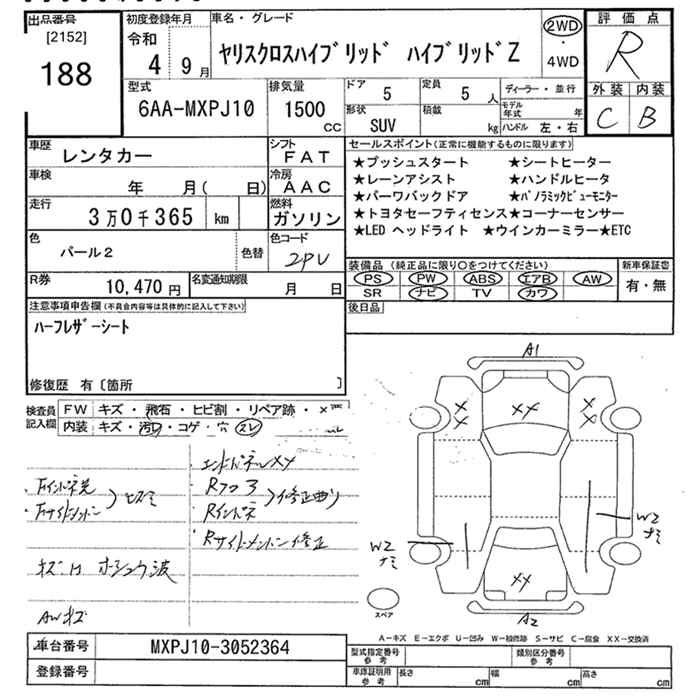 出品番号
[2152]
188
初度登録年月
令和
4 9月
車名・グレード
ヤリスクロスハイブリッド ハイブリッドZ
2WD
・
4WD
評価点
R
外装 内装
C B
型式
6AA-MXPJ10
排気量
1500
CC
ドア 5
定員 5 人
形状
SUV
積載
kg
ディーラー・並行
モデル年式 年
ハンドル 左・右
車歴
レンタカー
シフト
FAT
車検
年 月( 日)
冷房
AAC
走行
3万0千365 km
燃料
ガソリン
色
パール2
色替
色コード
2PU
R券
10,470 円
名変通知期限
月 日
セールスポイント(正常に機能するものに限ります)
★プッシュスタート ★シートヒーター
★レーンアシスト ★ハンドルヒータ
★パーワバックドア ★パノラミックビューモニター
★トヨタセーフティセンス★コーナーセンサー
★LED ヘッドライト ★ウインカーミラー★ETC
装備品(純正品に限り○をつけてください)
PS PW ABS エアB AW
SR ナビ TV カワ
新車保証書
有・無
後日品
注意事項申告欄(不具合内容等は具体的に記入して下さい)
ハーフレザーシート
修復歴 有〔箇所 〕
検査員記入欄
FW キズ・飛石・ヒビ割・リペア跡・
内装 キズ・汚レ・コゲ・穴 スレ
エンドパネルXX
Rフロア
Rインパネ
修正曲り
Rサイドメンバー修正
Fインパネ先
Fサイドメンバー
ヒズミ
キズ凹
AWキズ
A1
XX
XX
W2
ナミ
W2
ナミ
XX
A2
スペア
A-キズ E-エクボ U-凹み W-補修跡 S-サビ C-腐食 XX-交換済
車台番号
MXPJ10-3052364
登録番号
型式指定番号
参考
類別区分番号
参考
車庫証明用
参考
長さ cm
幅 cm
高さ cm